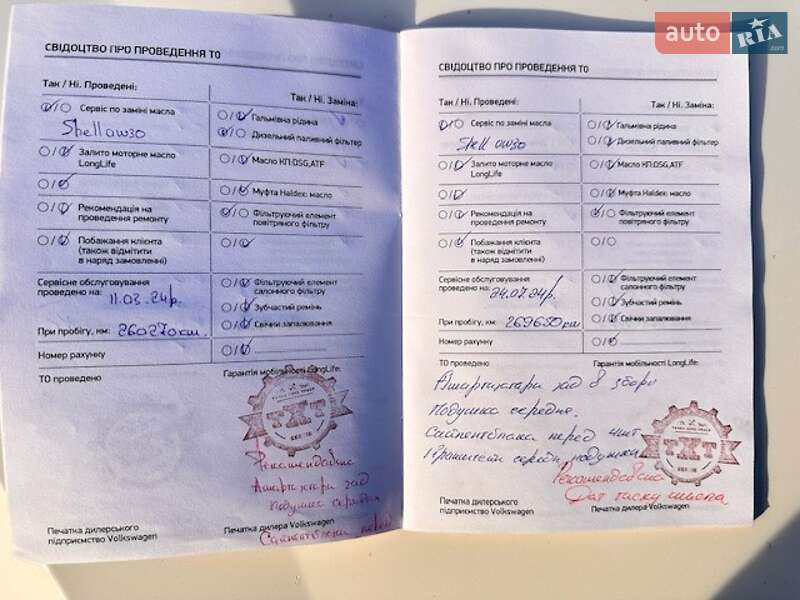 auto RIA
.com
СВІДОЦТВО ПРО ПРОВЕДЕННЯ ТО
Так / Ні. Проведені:
Сервіс по заміні масла
Shell 0w30
Залито моторне масло
LongLife
Рекомендація на
проведення ремонту
Побажання клієнта
(також відмітити
в наряд замовленні)
Сервісне обслуговування
проведено на: 11.03.24р.
При пробігу, км: 260270км.
Номер рахунку
ТО проведено
Печатка дилерського
підприємство Volkswagen
Так / Ні. Заміна:
Гальмівна рідина
Дизельний паливний фільтер
Масло КП:DSG,ATF
Муфта Haldex: масло
Фільтруючий елемент
повітряного фільтру
Фільтруючий елемент
салонного фільтру
Зубчастий ремінь
Свічки запалювання
Гарантія мобільності LongLife:
ТХТ
Рекомендовано
Амортизатори зад
подушка середня
Сайлентблоки перед
Печатка дилера Volkswagen
СВІДОЦТВО ПРО ПРОВЕДЕННЯ ТО
Так / Ні. Проведені:
Сервіс по заміні масла
Shell 0w30
Залито моторне масло
LongLife
Рекомендація на
проведення ремонту
Побажання клієнта
(також відмітити
в наряд замовленні)
Сервісне обслуговування
проведено на: 24.07.24р.
При пробігу, км: 269650км
Номер рахунку
ТО проведено
Так / Ні. Заміна:
Гальмівна рідина
Дизельний паливний фільтер
Масло КП:DSG,ATF
Муфта Haldex: масло
Фільтруючий елемент
повітряного фільтру
Фільтруючий елемент
салонного фільтру
Зубчастий ремінь
Свічки запалювання
Гарантія мобільності LongLife:
Амортизатори зад в зборі
Подушка середня.
Сайлентблоки перед 4шт
Кранштейн середн. подушка
ТХТ
Рекомендовано
Дат тиску
Печатка дилерського
підприємство Volkswagen
Печатка дилера Volkswagen